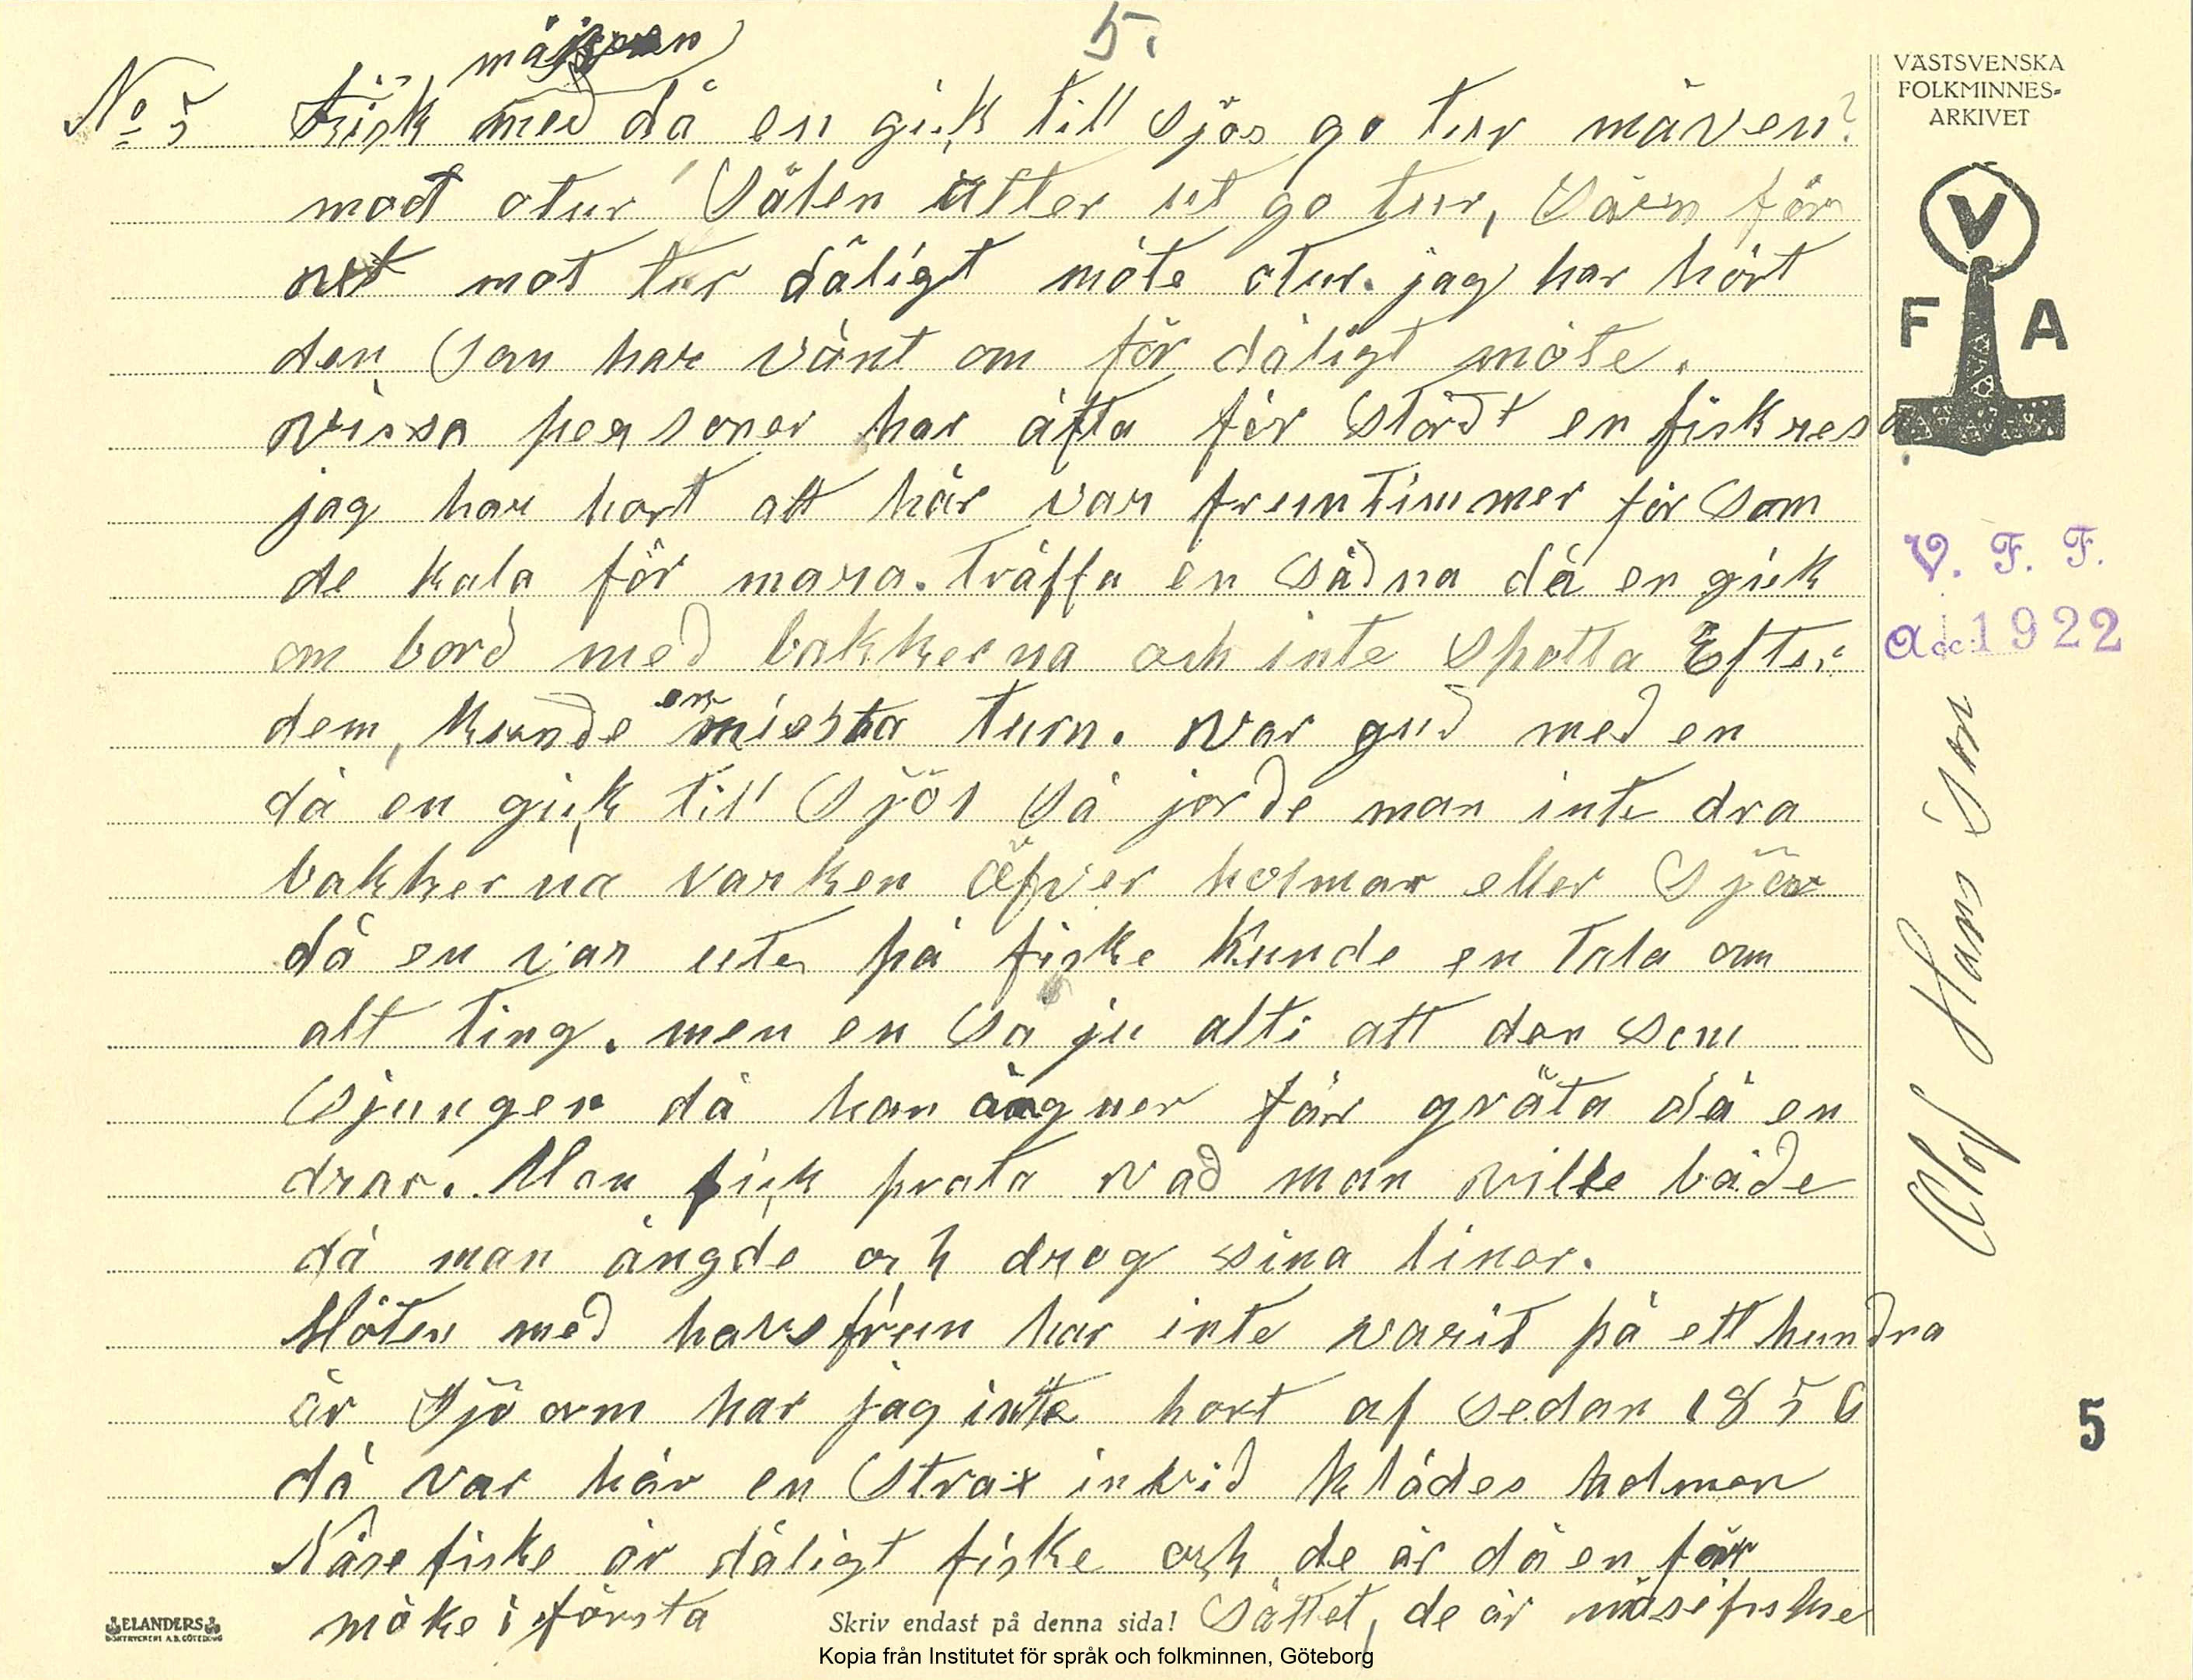 5.
No 5 Fisk med då en gick till sjös go tur måven?
mot otur Sälen åtter ut go tur, Sälen för
mot tur dåligt möte otur. jag har hört
den Som har vänt om för dåligt möte.
vissa personer har åfta för Stördt en fiskresa
jag har hort att här var fruntimmer för Som
de kala för mara. träffa en Sådna då en gick
om bord med bakkerna och inte Spotta Efter
dem, kunde en mista turn. var gud med en
då en gick till Sjös Så jorde man inte dra
bakkerna varken öfver holmar eller Sjöar
då en var ute på fiske kunde en tala om
alt ting. men en Sa ju alti att den som
Sjunger då han ängner får gräta då en
drar. Man fick prata vad man ville både
då man ängde och drog sina linor.
Möten med havsfrun har inte varit på ett hundra
år Sjöorm har jag inte hort af sedan 1856
då var här en Strax invid klådes holmen
Näsefiske är dåligt fiske och de är då en får
måke i första Sättet, de är näsefiske
VÄSTSVENSKA
FOLKMINNES-
ARKIVET
V
F A
V. F. F.
Acc. 1922
Olof Hansson
5
ELANDERS
BOKTRYCKERI A.B. GÖTEBORG
Skriv endast på denna sida!
Kopia från Institutet för språk och folkminnen, Göteborg